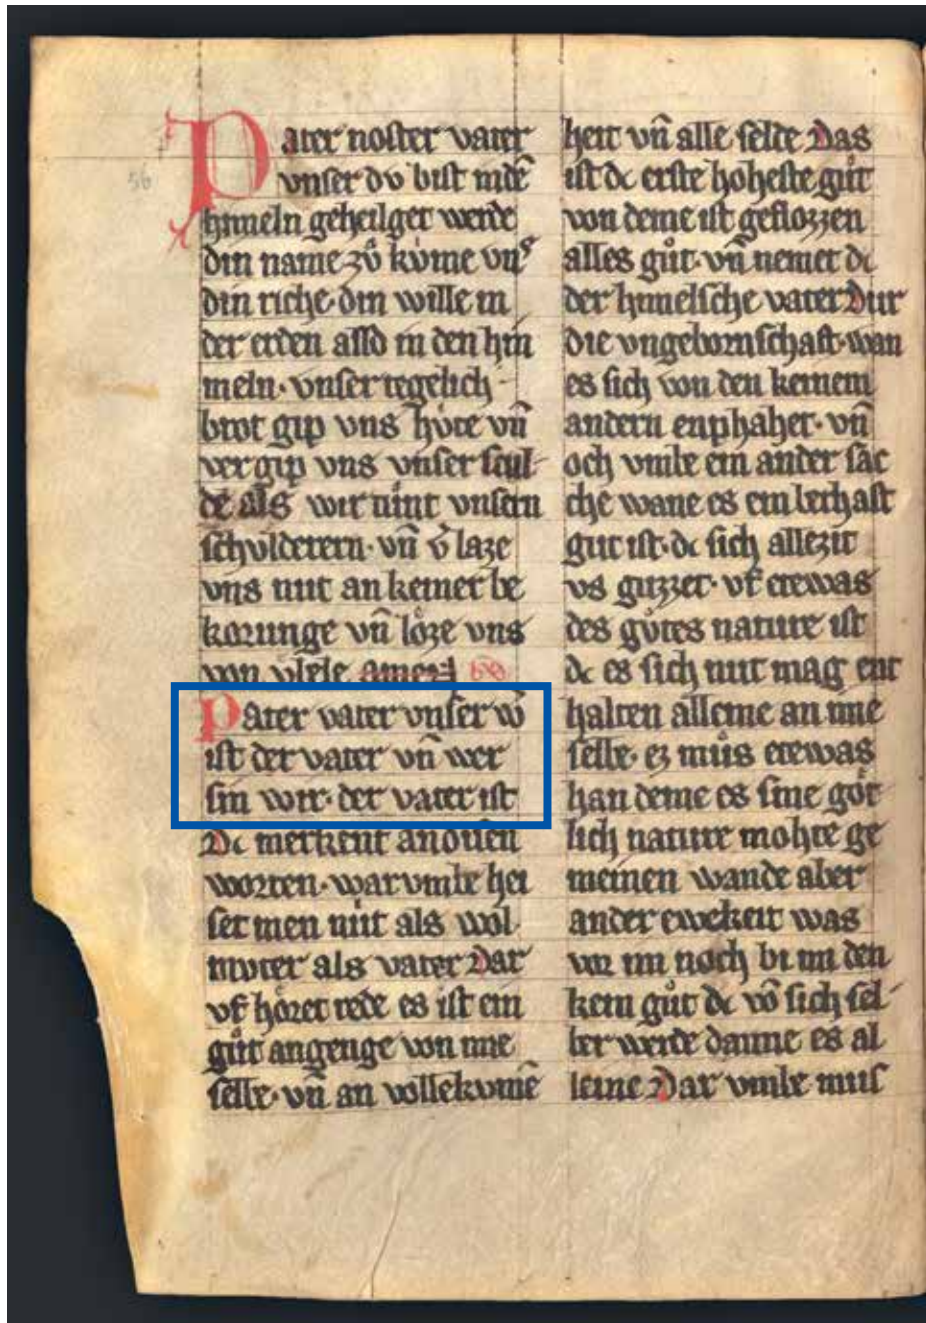 56
Pater noster vater
vnser dv bist in dē
himeln geheilget werde
din name zů kvme vnˢ
din riche· din wille in
der erden also in den him
meln· vnser tegelich
brot gip vns hv́te vn̄
vergip vns vnser scul
de als wir tůnt vnsern
schvlderern· vn̄ v̄ laze
vns nut an keiner be
korunge vn̄ lo̊ze vns
von vbele amen
Pater vater vnser w̄
ist der vater vn̄ wer
sin wir· der vater ist
Dc merkent an disen
worten· war vmbe hei
set men nút als wol
mvter als vater Dar
vf ho̊ret rede es ist ein
gůt angenge von ime
selbe· vn̄ an vollekvmē
heit vn̄ alle selde Das
ist dc erste hoheste gůt
von deme ist geflozzen
alles gůt· vn̄ nemet dc
der himelsche vater Dur
die vngebornschaft· wan
es sich von den keinem
andern enphahet· vn̄
och vmbe ein ander sac
che wane es ein berhaft
gut ist· dc sich allezit
vs guzzet· vf etewas
des gůtes nature ist
dc es sich nut mag ent
halten alleine an ime
selbe· ez můs etewas
han deme es sine go̊t
lich nature mohte ge
meinen wande aber
ander ewekeit was
vor im noch bi im den
kein gůt dc vō sich sel
ber werde danne es al
leine Dar vmbe mus